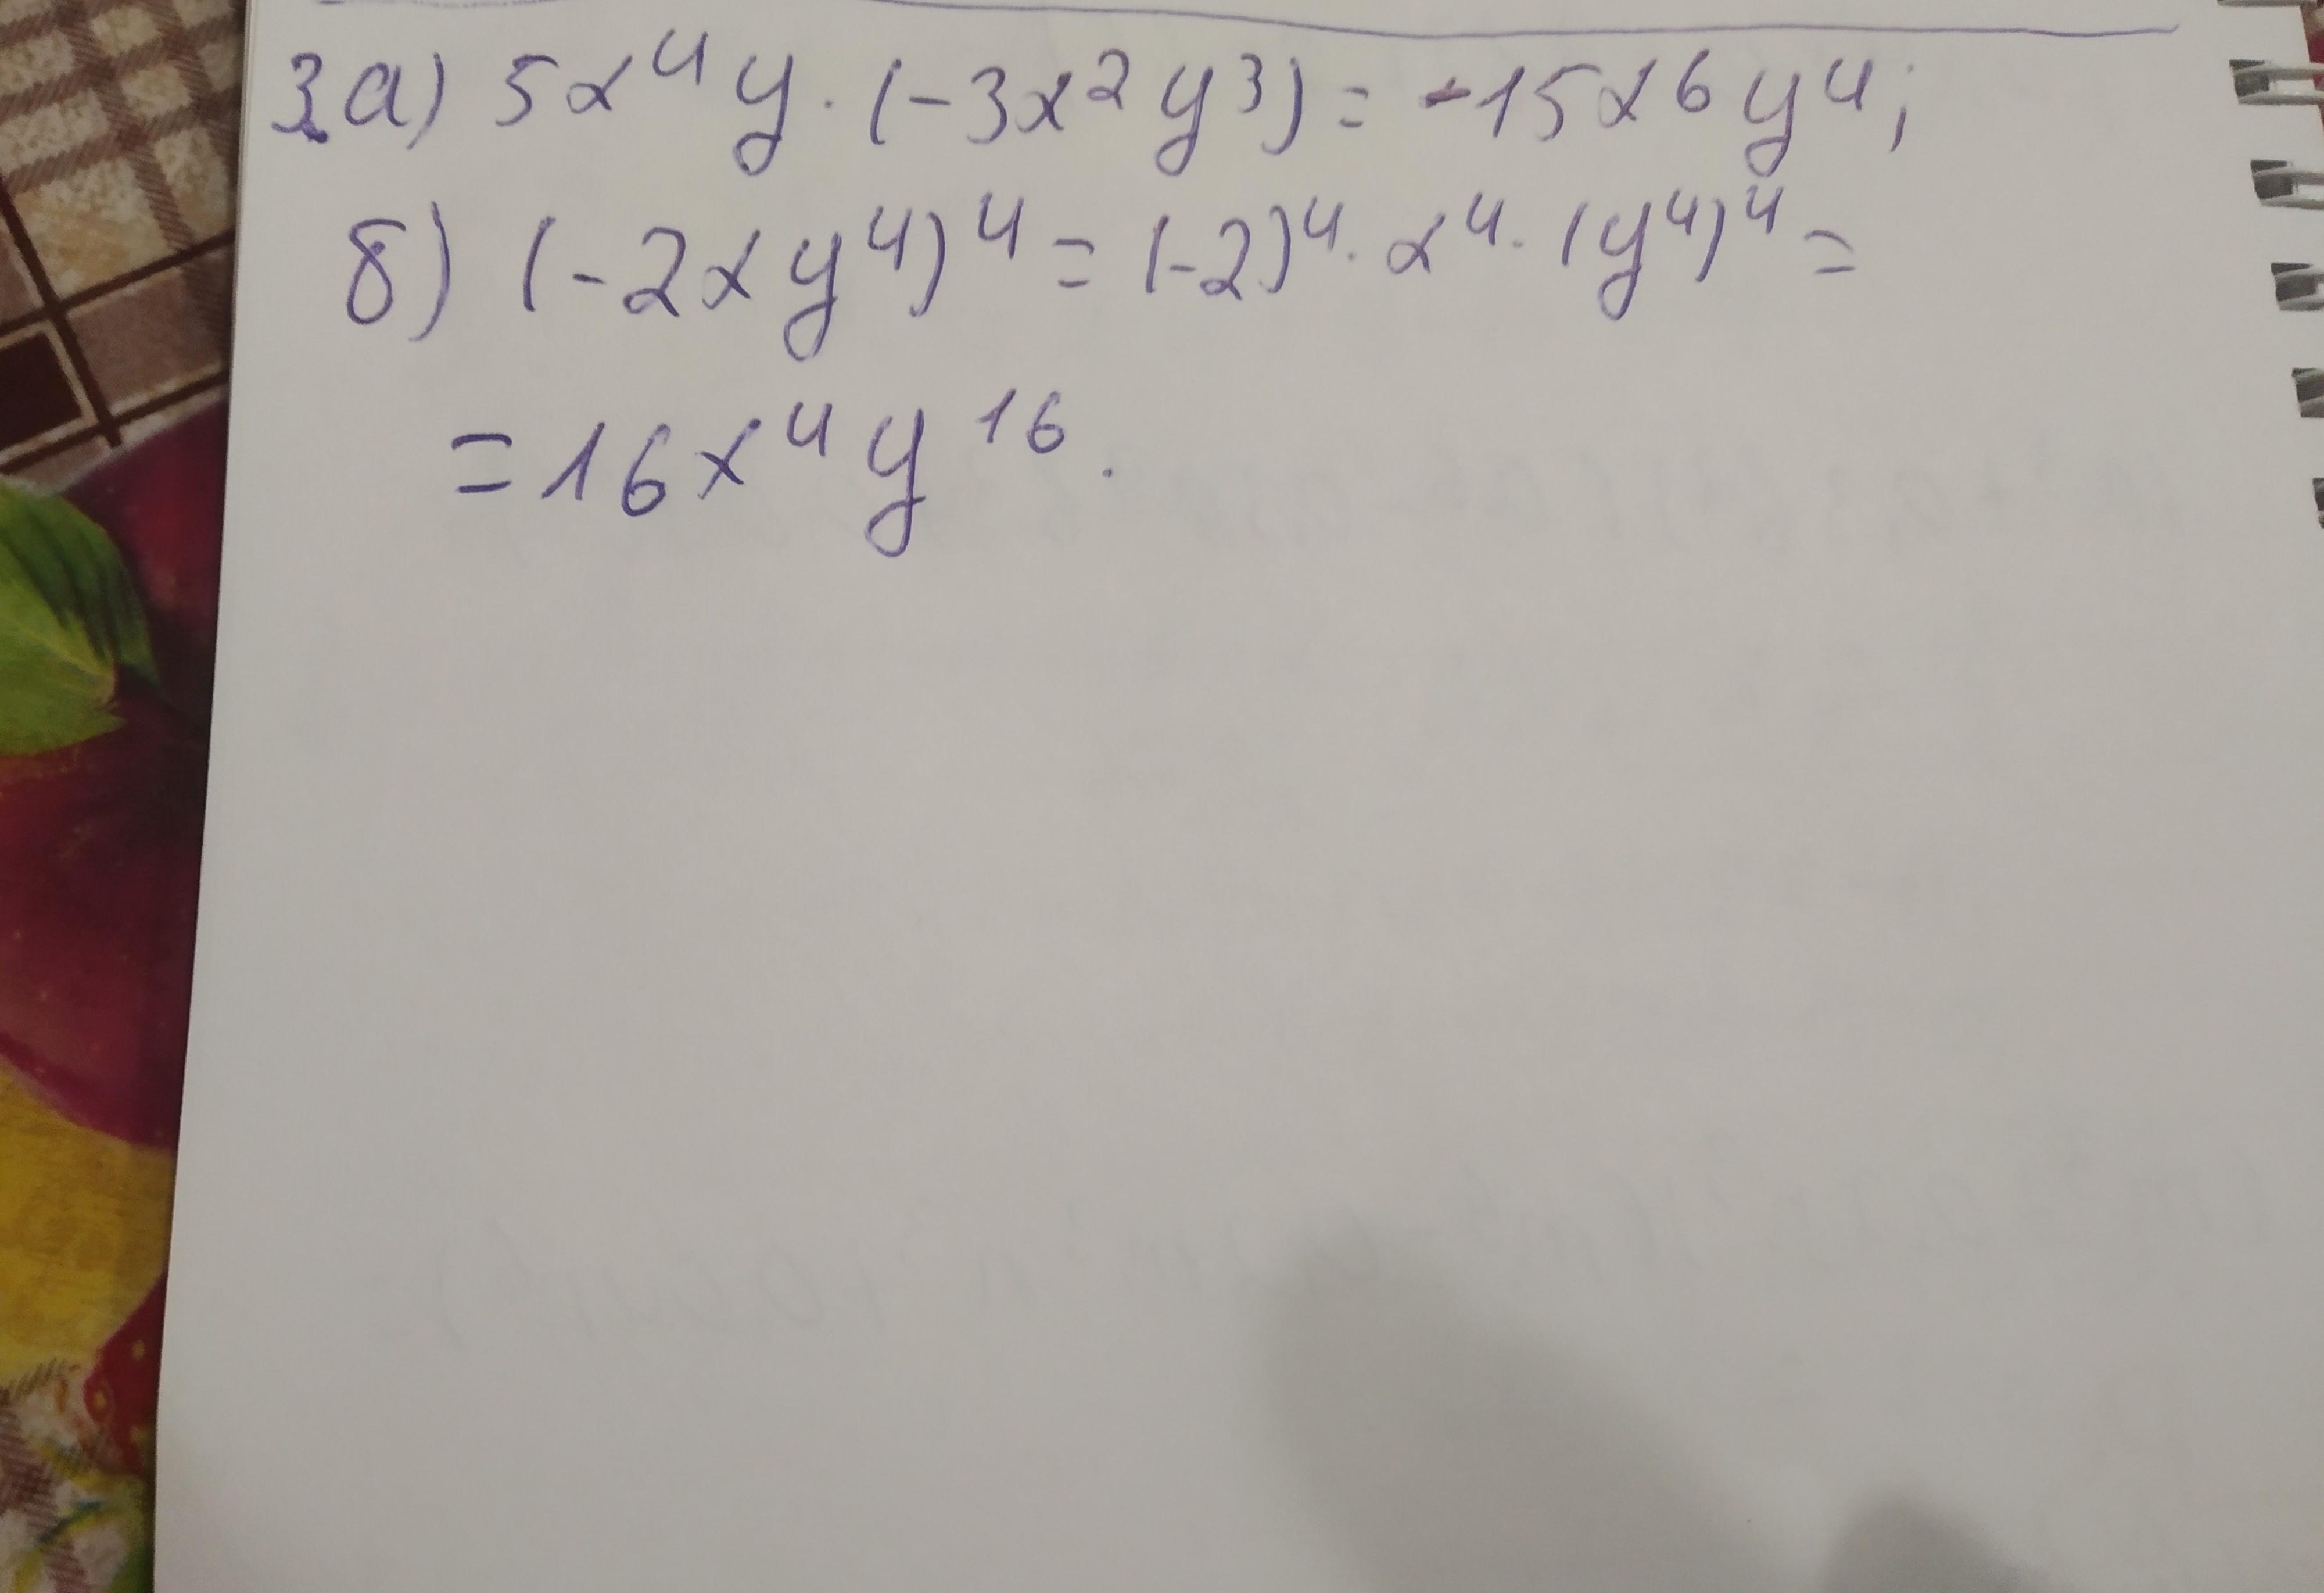 3. а) 5x⁴y · (-3x²y³) = -15x⁶y⁴;
б) (-2xy⁴)⁴ = (-2)⁴ · x⁴ · (y⁴)⁴ =
= 16x⁴y¹⁶.